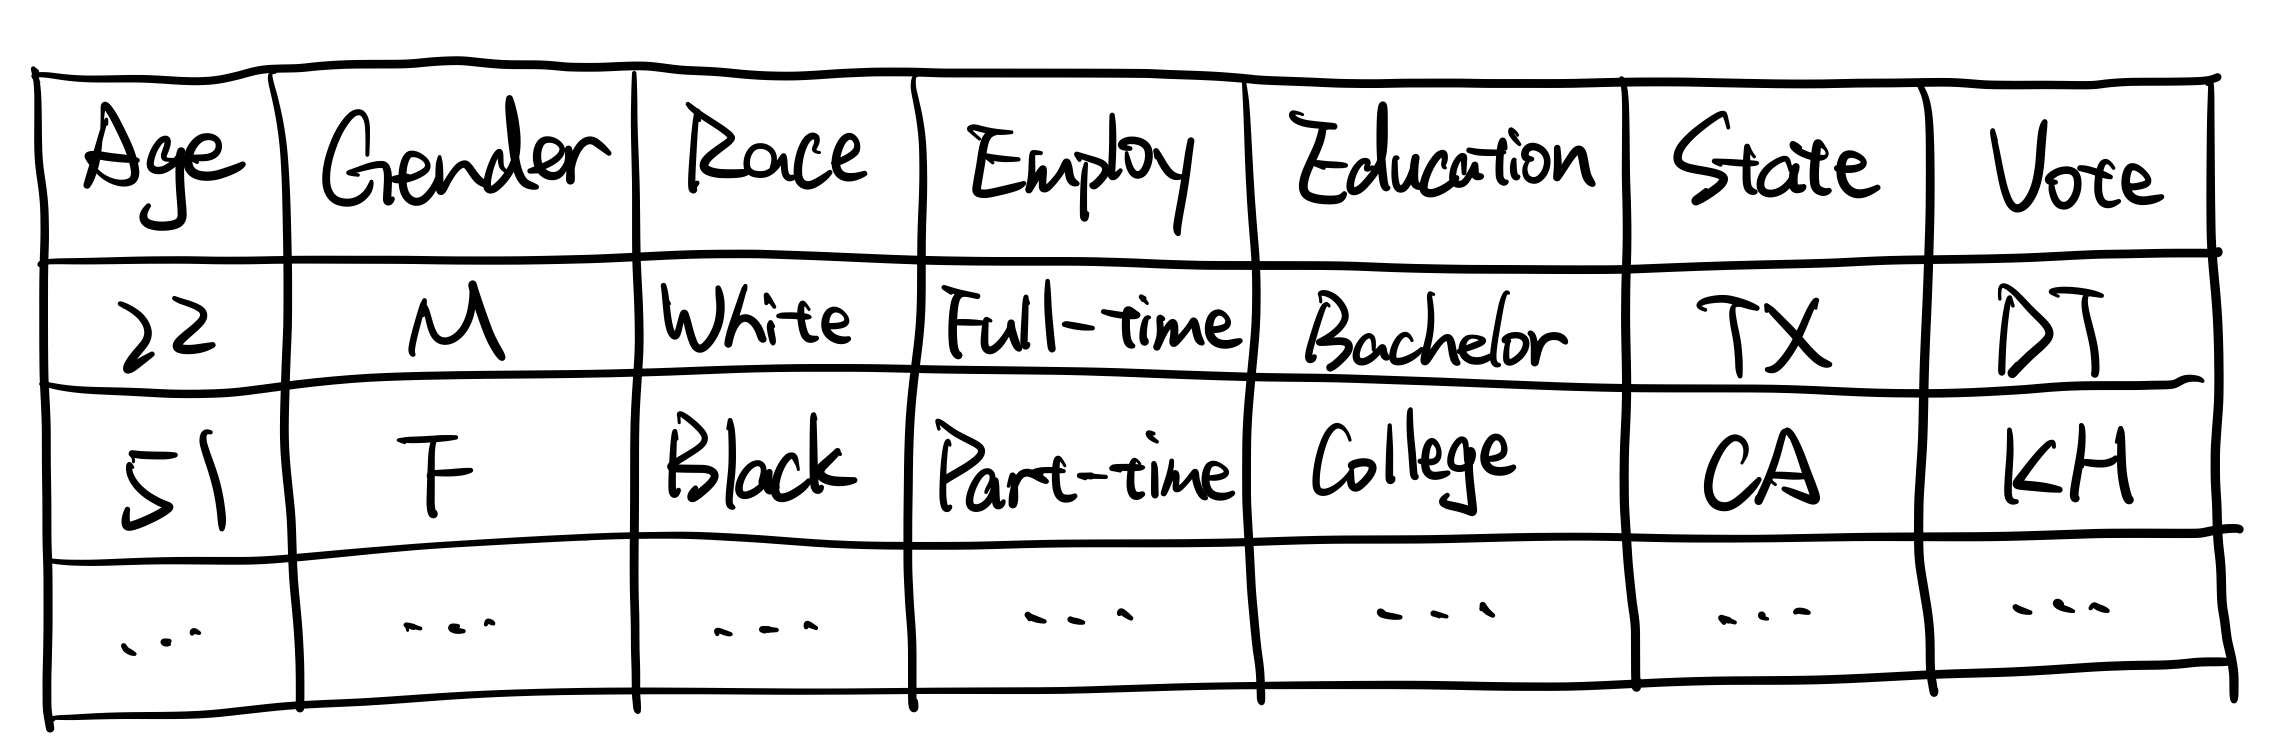 Age Gender Race Employ Education State Vote
22 M White Full-time Bachelor TX DT
51 F Black Part-time College CA KH
... ... ... ... ... ... ...